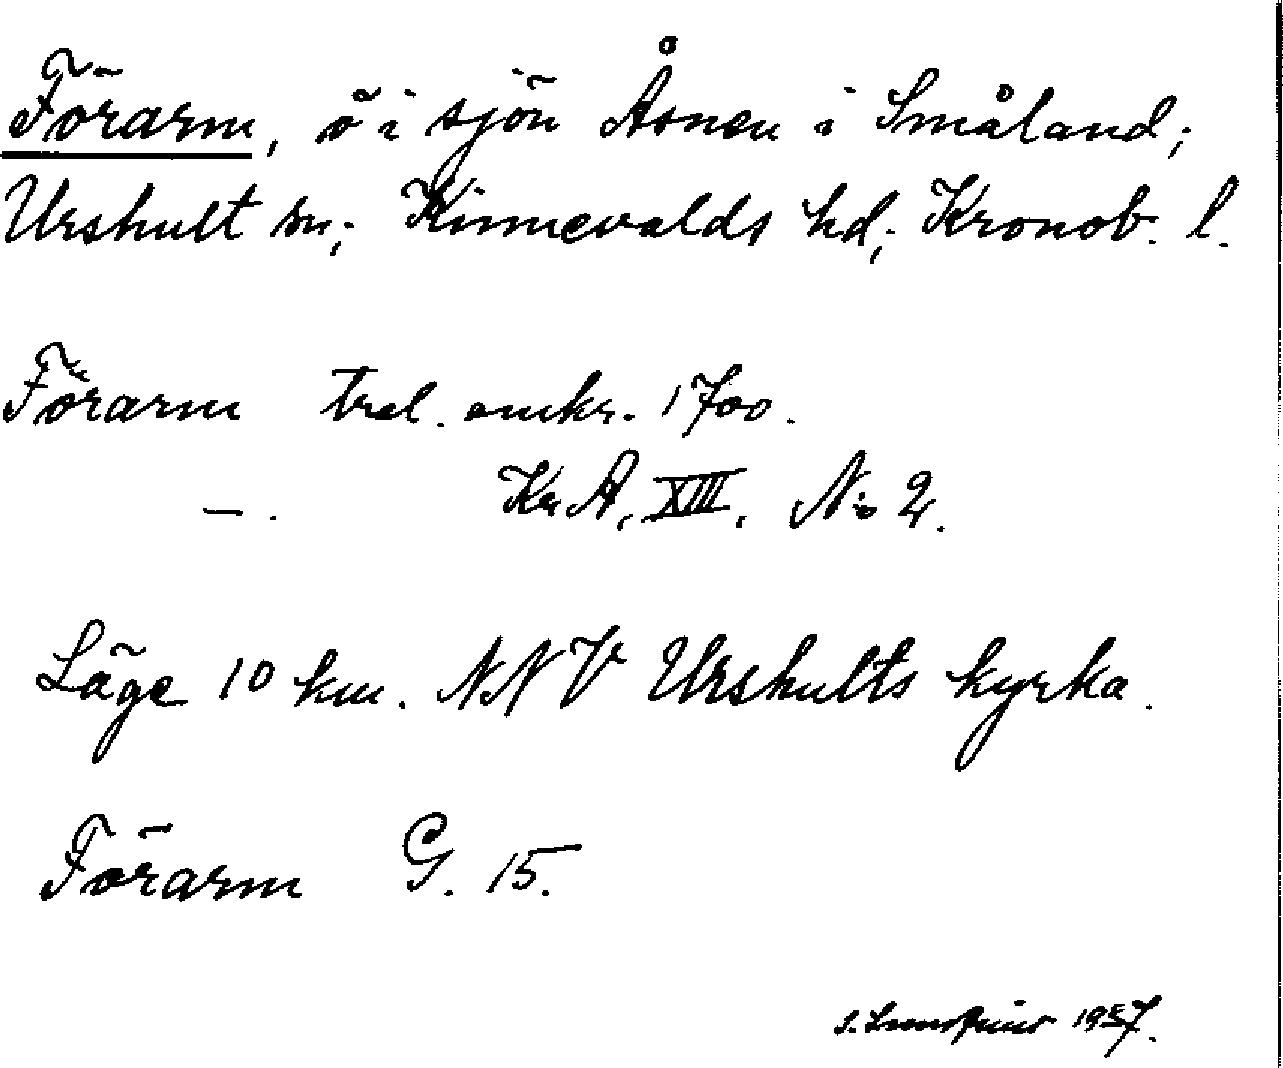 Förarm, ö i sjön Åsnen i Småland;
Urshult sn; Kinnevalds hd; Kronob. l.
Förarm trol. omkr. 1700.
—. KrA, XIII, No 2.
Läge 10 km. NNV Urshults kyrka.
Förarm G. 15.
1957.